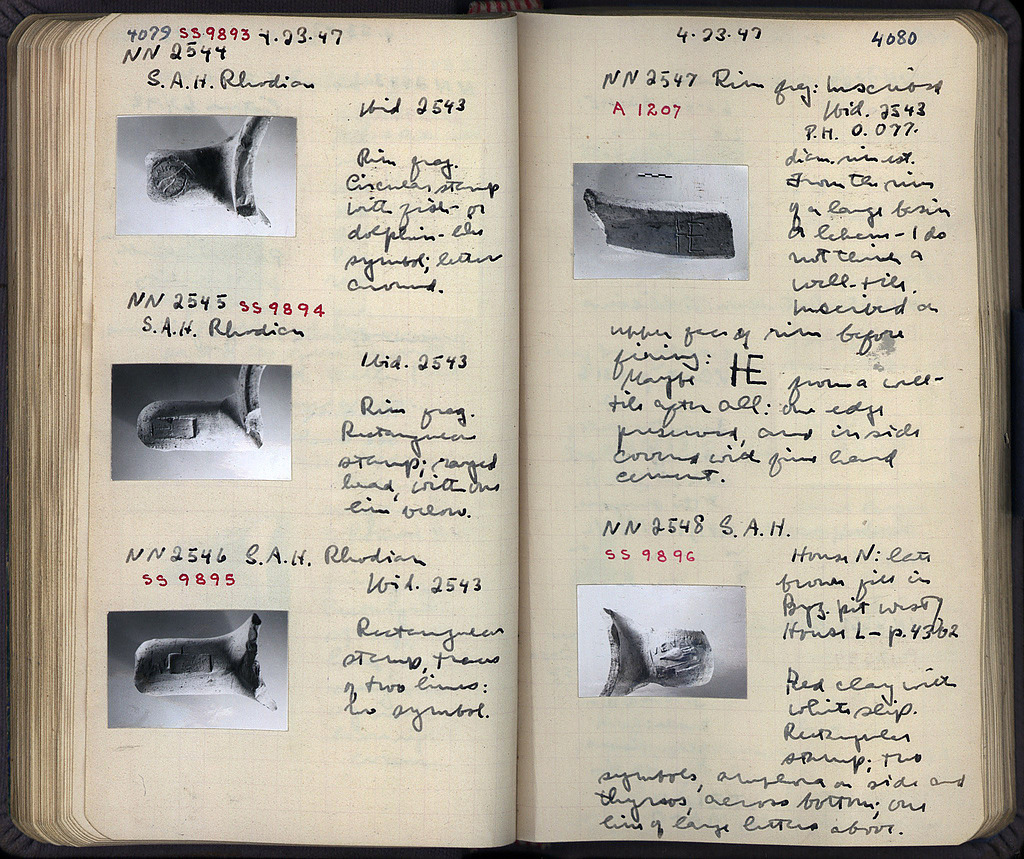 4079 SS 9893 4.23.47
NN 2544
S.A.H. Rhodian
Ibid 2543
Rim frag.
Circular stamp
with fish- or
dolphin-like
symbol; letters
around.
NN 2545 SS 9894
S.A.H. Rhodian
Ibid. 2543
Rim frag.
Rectangular
stamp; rayed
head, with one
line below.
NN 2546 S.A.H. Rhodian
SS 9895
Ibid. 2543
Rectangular
stamp, traces
of two lines:
no symbol.
4.23.47 4080
NN 2547 Rim frag: Inscribed
A 1207 Ibid. 2543
P.H. 0.077.
diam. rim est.
From the rim
of a large basin
or lekane - I do
not think a
well-tile.
Inscribed on
upper face of rim before
firing:
Maybe HE from a well-
tile after all: one edge
preserved, and inside
covered with fine hard
cement.
NN 2548 S.A.H.
SS 9896
House N: late
brown fill in
Byz. pit west of
House L - p. 4362
Red clay with
white slip.
Rectangular
stamp; two
symbols, amphora on side and
thyrsos, across bottom; one
line of large letters above.